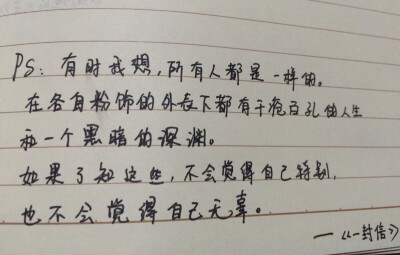 PS：有时我想，所有人都是一样的。
在各自粉饰的外表下都有千疮百孔的人生
和一个黑暗的深渊。
如果了知这些，不会觉得自己特别，
也不会觉得自己无辜。
—《一封信》